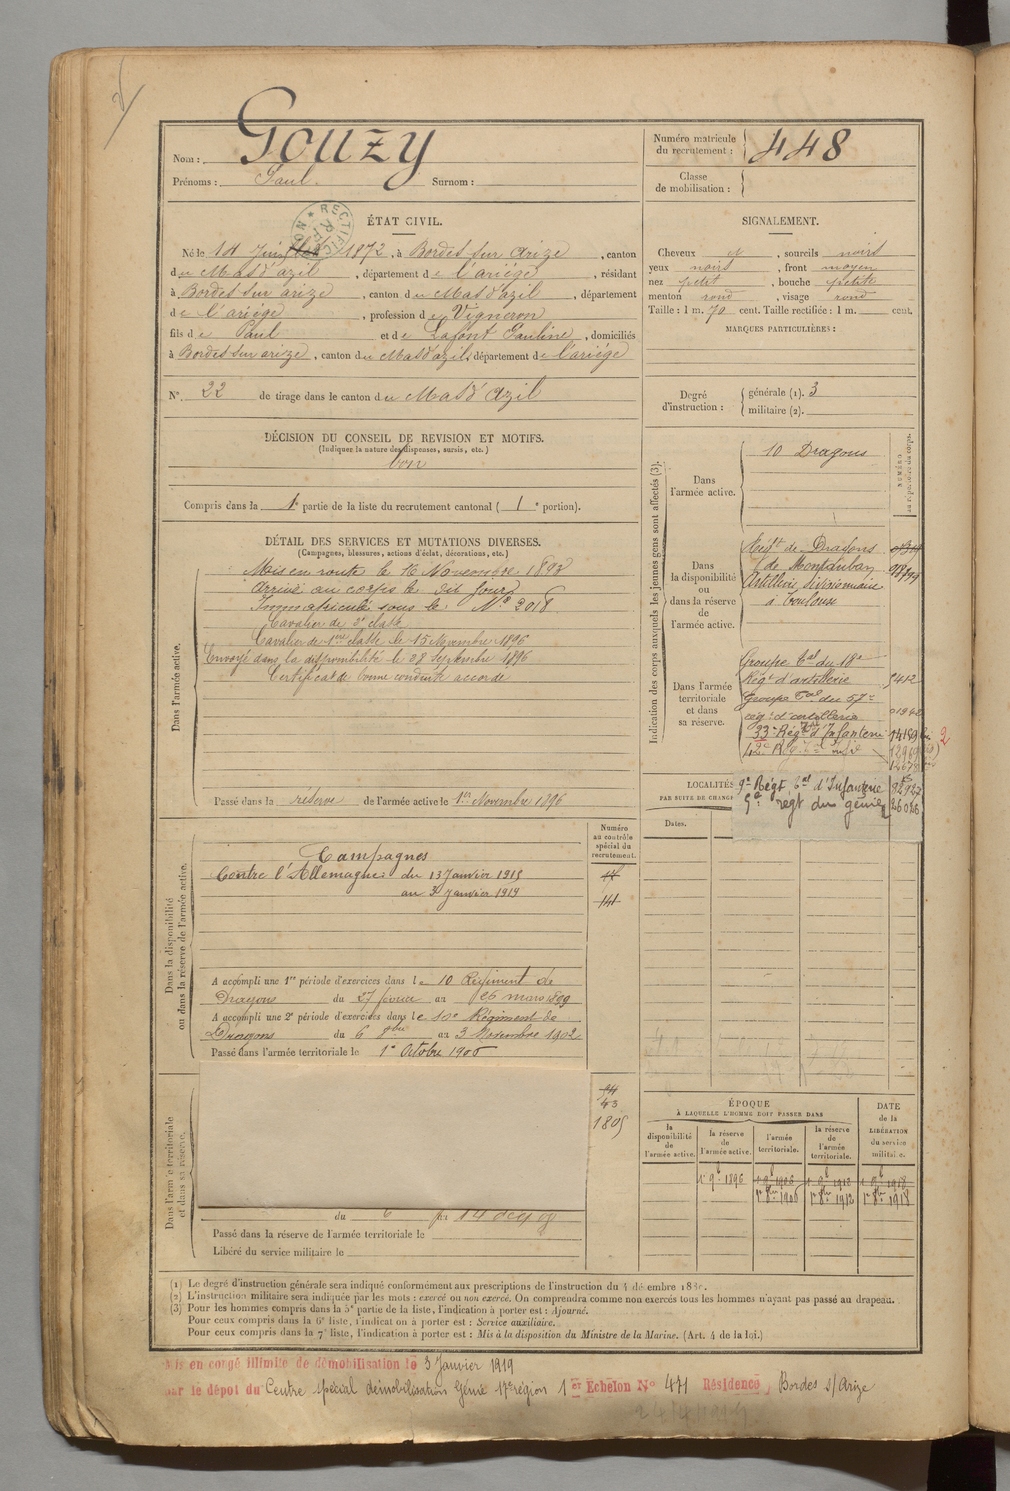 Nom : Gouzy
Prénoms : Paul. Surnom :
Numéro matricule du recrutement : 448
Classe de mobilisation :
RECTIFICATION
ÉTAT CIVIL.
Né le 14 1872, à Bordes sur Arize, canton
du Mas d'azil, département de l'ariége, résidant
à Bordes sur arize, canton du Mas d'azil, département
de l'ariége, profession de Vigneron
fils de Paul et de Lafont Pauline, domiciliés
à Bordes sur arize, canton du Mas d'azil, département de l'ariége
N° 22 de tirage dans le canton du Mas d'Azil
SIGNALEMENT.
Cheveux et, sourcils noirs
yeux noirs, front moyen
nez petit, bouche petite
menton rond, visage rond
Taille : 1 m. 70 cent. Taille rectifiée : 1 m. cent.
MARQUES PARTICULIÈRES :
Degré d'instruction : générale (1). 3
militaire (2).
DÉCISION DU CONSEIL DE REVISION ET MOTIFS.
(Indiquer la nature des dispenses, sursis, etc.)
bon
Compris dans la 1e partie de la liste du recrutement cantonal ( 1e portion).
DÉTAIL DES SERVICES ET MUTATIONS DIVERSES.
(Campagnes, blessures, actions d'éclat, décorations, etc.)
Dans l'armée active.
Mis en route le 16 Novembre 1893
Arrivé au corps le dit jour
Immatriculé sous le N° 2018
Cavalier de 2e classe
Cavalier de 1ère classe le 15 Novembre 1896
Envoyé dans la disponibilité le 28 Septembre 1896
Certificat de bonne conduite accordé
Passé dans la réserve de l'armée active le 1er Novembre 1896
Indication des corps auxquels les jeunes gens sont affectés (3).
NUMÉRO
Dans l'armée active.
10 Dragons
Dans la disponibilité ou dans la réserve de l'armée active.
Régt de Dragons
de Montauban
Artillerie divisionnaire
à Toulouse
Dans l'armée territoriale et dans sa réserve.
Groupe tal du 18e
Régt d'artillerie
Groupe tal du 57e
rég. d'artillerie
33e Régt d'Infanterie
9e Régt tal d'Infanterie
régt du génie
LOCALITÉS
PAR SUITE DE CHANG
Dates.
Numéro au contrôle spécial du recrutement.
Dans la disponibilité ou dans la réserve de l'armée active.
Campagnes
Contre l'Allemagne du 13 Janvier 1915
au 3 Janvier 1919
141
A accompli une 1re période d'exercices dans le 10 Régiment de
Dragons du 27 février au 26 mars 1899
A accompli une 2e période d'exercices dans le 10e Régiment de
Dragons du 6 8bre au 3 Novembre 1902
Passé dans l'armée territoriale le 1er Octobre 1906
Dans l'armée territoriale et dans sa réserve.
43
1805
du 6 14
Passé dans la réserve de l'armée territoriale le
Libéré du service militaire le
ÉPOQUE
À LAQUELLE L'HOMME DOIT PASSER DANS
DATE de la LIBÉRATION du service militaire.
la disponibilité de l'armée active.
la réserve de l'armée active.
l'armée territoriale.
la réserve de l'armée territoriale.
1er 9b 1896
1er 8bre 1906 1er 8bre 1912 1er 8bre 1918
(1) Le degré d'instruction générale sera indiqué conformément aux prescriptions de l'instruction du 4 décembre 188 .
(2) L'instruction militaire sera indiquée par les mots : exercé ou non exercé. On comprendra comme non exercés tous les hommes n'ayant pas passé au drapeau.
(3) Pour les hommes compris dans la 5e partie de la liste, l'indication à porter est : Ajourné.
Pour ceux compris dans la 6e liste, l'indication à porter est : Service auxiliaire.
Pour ceux compris dans la 7e liste, l'indication à porter est : Mis à la disposition du Ministre de la Marine. (Art. 4 de la loi.)
is en congé illimité de démobilisation le 3 Janvier 1919
ar le dépôt du Centre spécial démobilisation Génie 17e région 1er Echelon No 471 Résidence, Bordes s/Arize